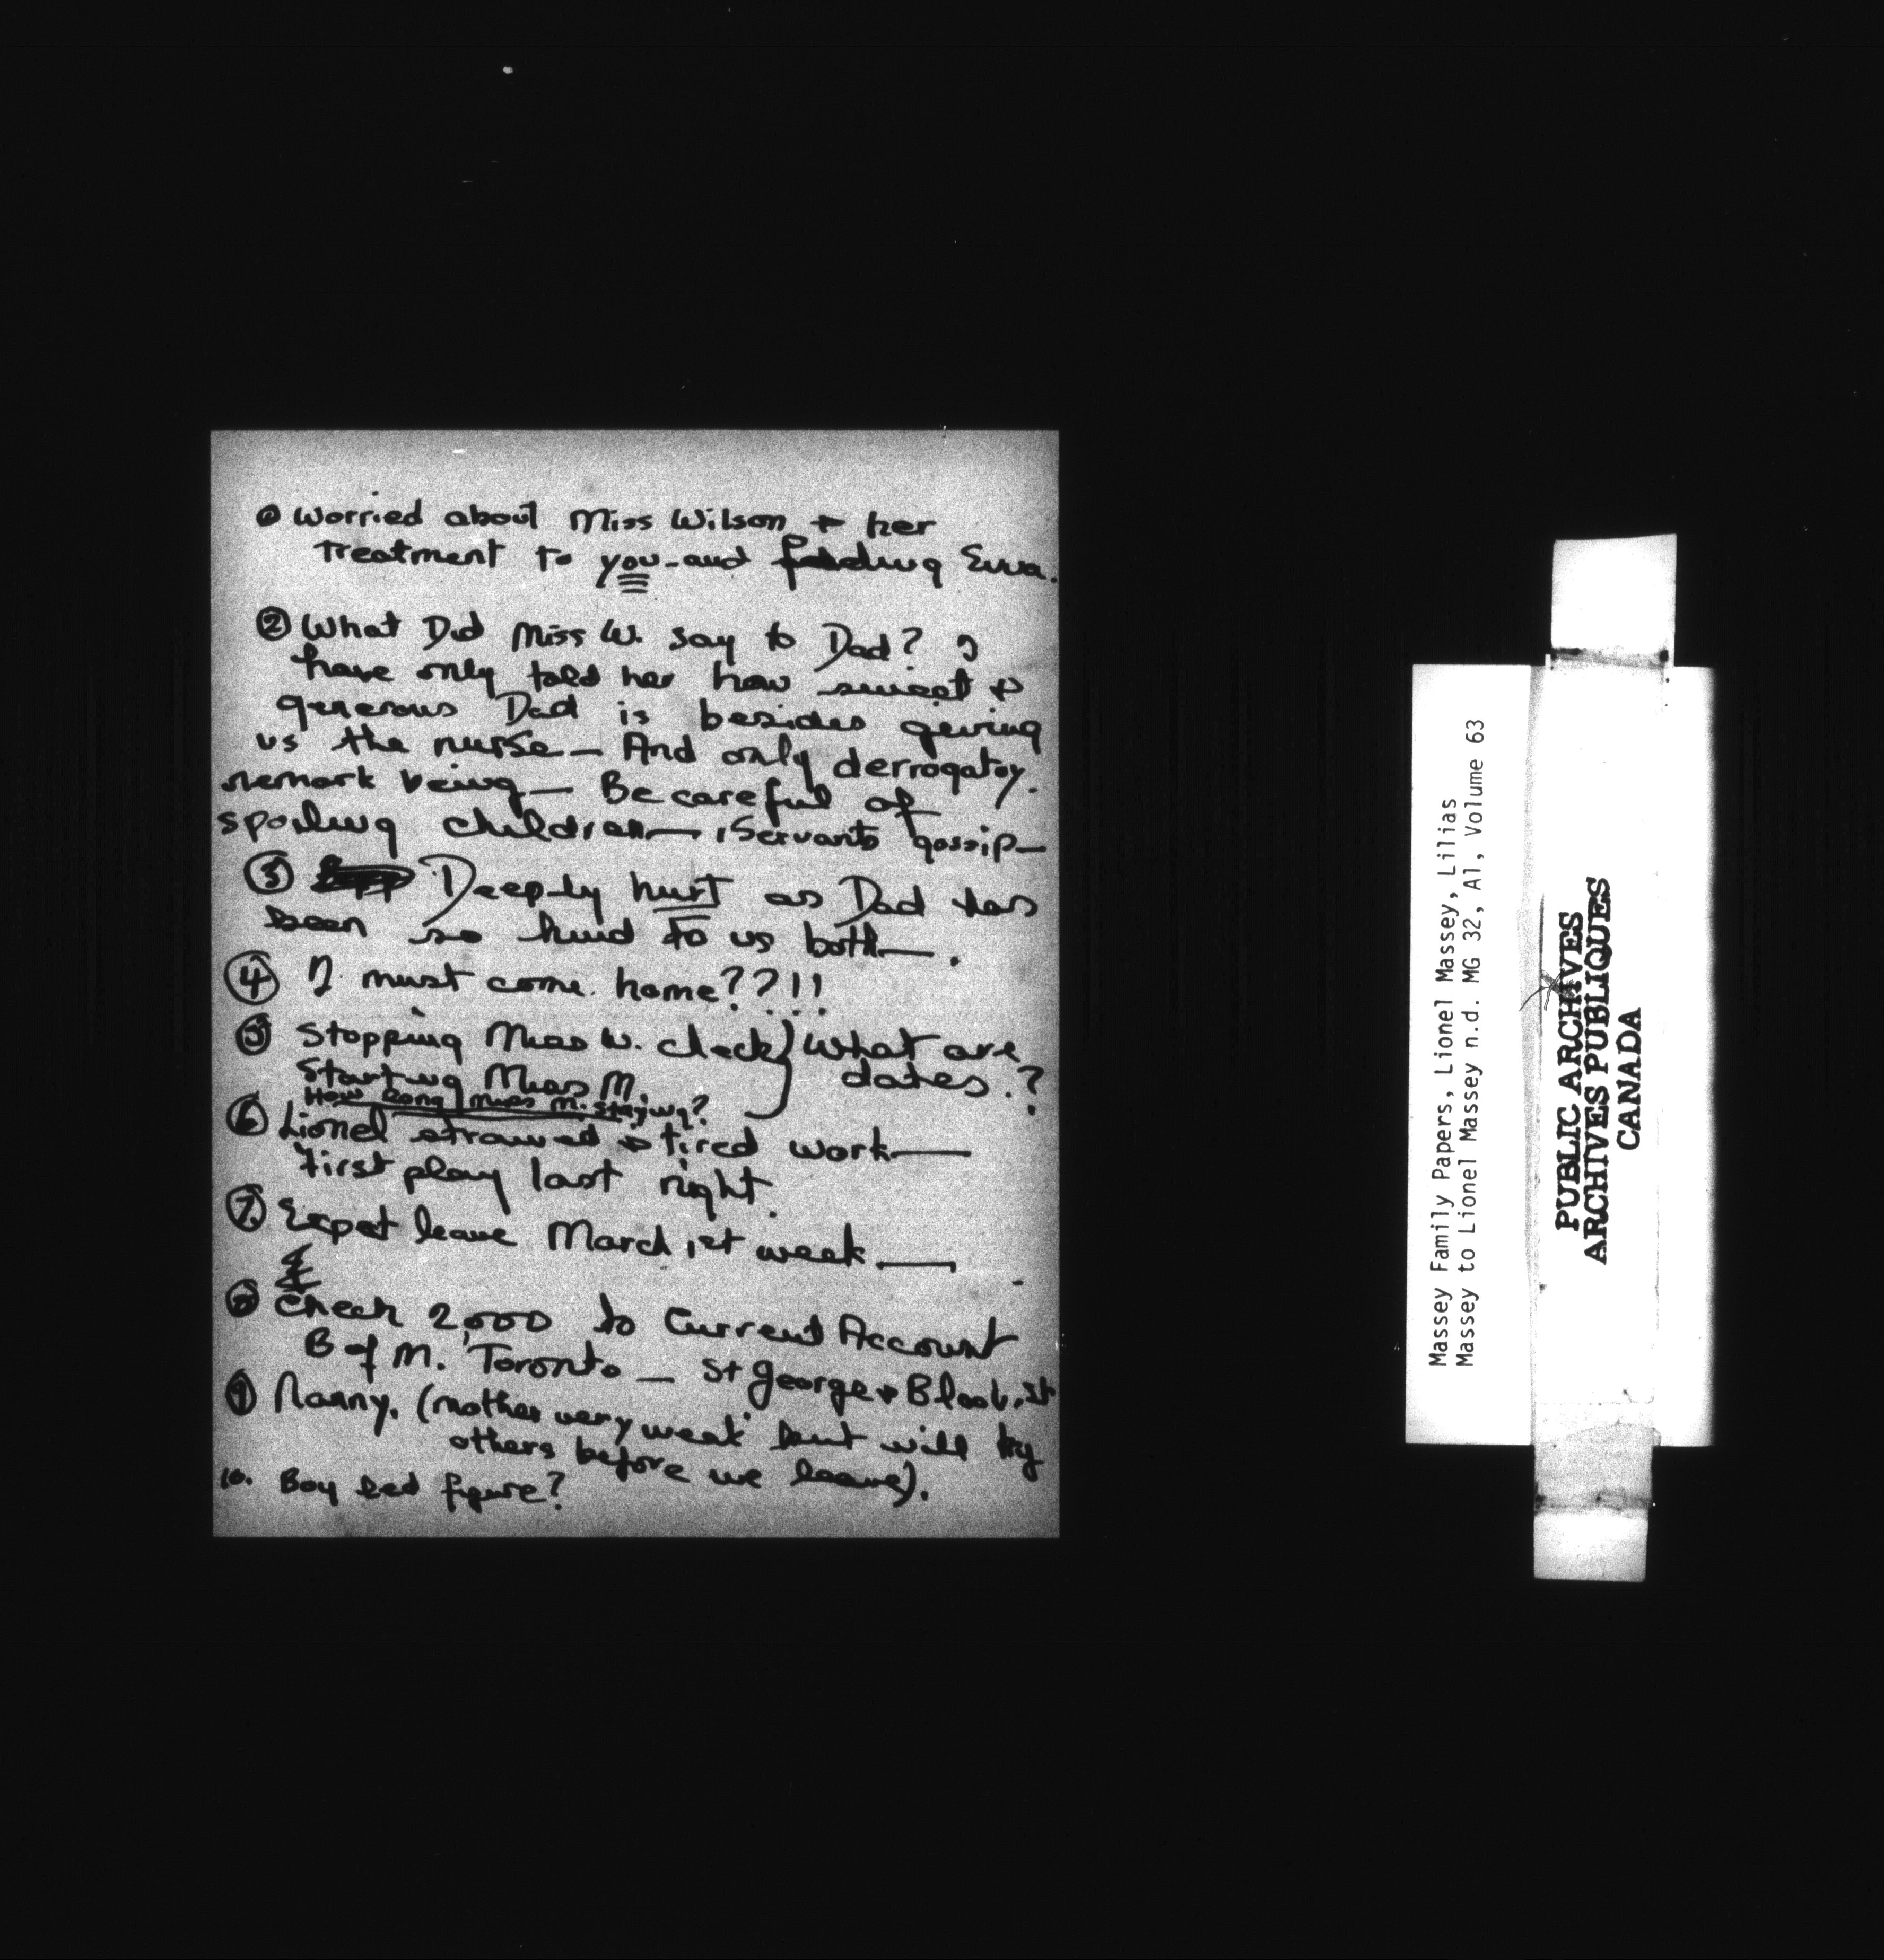 ① Worried about Miss Wilson + her
treatment to you - and feeding Evva.
② What Did Miss W. say to Dad? I
have only told her how sweet +
generous Dad is besides geving
us the nurse — And only derrogatoy.
remark being — Be careful of
spoiling children — , Servants gossip —
③ Deeply hurt as Dad has
been so kind to us both — .
④ I must come home??!!
⑤ Stopping Miss W. check } What are
Starting Miss M. dates.?
How long Miss M. staying?
⑥ Lionel strained + tired work —
First play last night.
⑦ Expet leave March 1st week —
⑧ Check 2,000 to Current Account
B of M. Toronto — St George + Bloor, St
⑨ Nanny. (mother very weak but will try
others before we leave).
10. Boy bed figure?
Massey Family Papers, Lionel Massey, Lilias
Massey to Lionel Massey n.d. MG 32, A1, Volume 63
PUBLIC ARCHIVES
ARCHIVES PUBLIQUES
CANADA